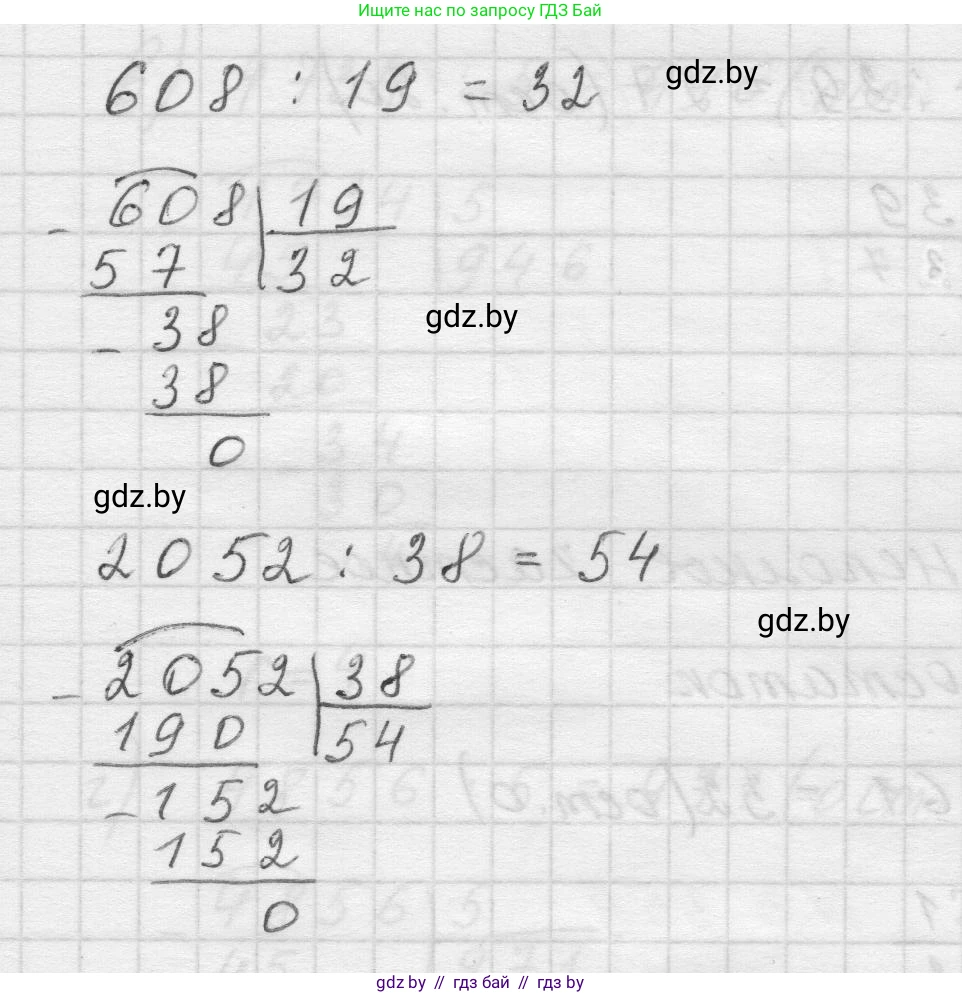 Ищите нас по запросу ГДЗ Бай
608 : 19 = 32
gdz.by
608 19
- 57 32
gdz.by
- 38
38
0
gdz.by
2052 : 38 = 54
gdz.by
- 2052 38
190 54
- 152
152
0
gdz.by // гдз бай // gdz.by